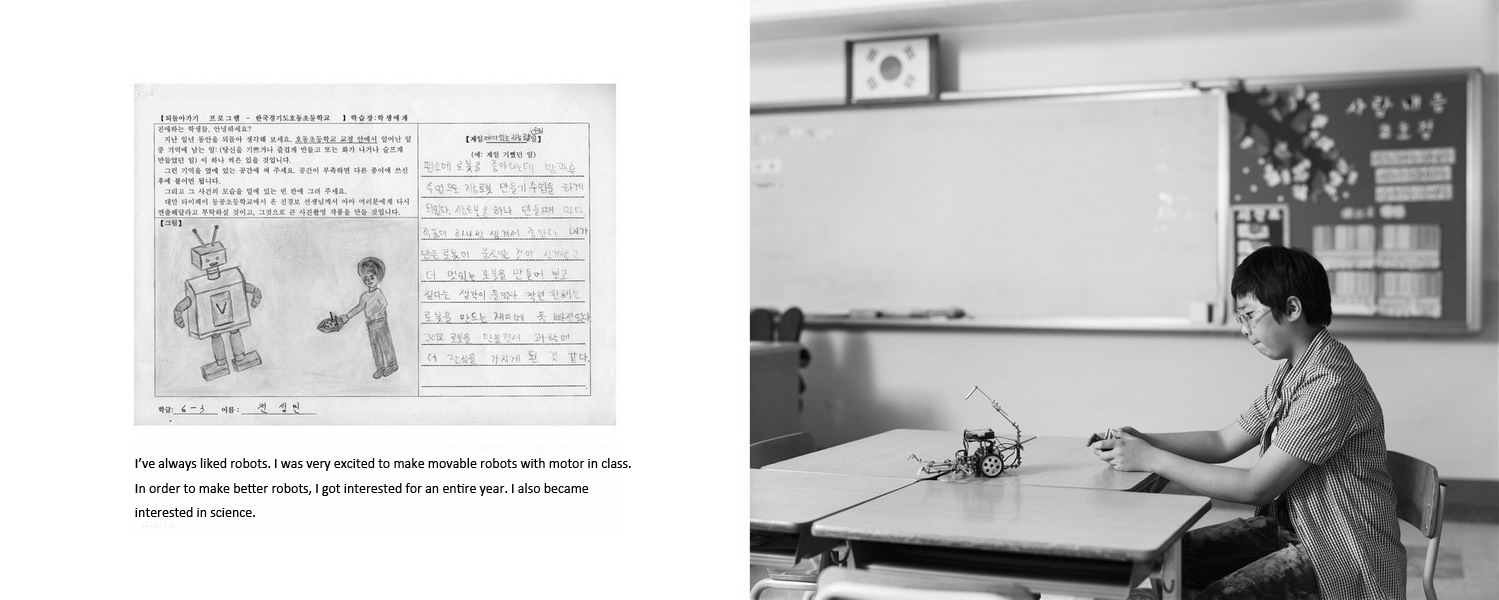 【되돌아가기 프로그램 - 한국경기도호동초등학교 】 학습장:학생에게
친애하는 학생들, 안녕하세요?
지난 일년 동안을 되돌아 생각해 보세요. 호동초등학교 교정 안에서 일어난 일
중 기억에 남는 일: (당신을 기쁘거나 즐겁게 만들고 또는 화가 나거나 슬프게
만들었던 일) 이 하나 씩은 있을 것입니다.
그런 기억을 옆에 있는 공간에 써 주세요. 공간이 부족하면 다른 종이에 쓰신
후에 붙이면 됩니다.
그리고 그 사건의 모습을 밑에 있는 빈 칸에 그려 주세요.
대만 타이페이 동공초등학교에서 온 진경보 선생님께서 아마 여러분에게 다시
연출해달라고 부탁하실 것이고, 그것으로 큰 사진촬영 작품을 만들 것입니다.
【그림】
【제일 재미있는 일】
(예: 제일 기뻤던 일)
평소에 로봇을 좋아하는데 방과후
수업으로 지능로봇 만들기 수업을 하게
되었다. 로봇을 하나 만들때 마다
작품이 하나씩 생겨서 좋았다 내가
만든 로봇이 움직이는 것이 신기했고
더 멋있는 로봇을 만들어 보고
싶다는 생각이 들었다 작년 한해는
로봇을 만드는 재미에 푹 빠졌었다
그리고 로봇을 만들면서 과학에
더 관심을 가지게 된 것 같다.
학급: 6-3 이름: 전 성민
I’ve always liked robots. I was very excited to make movable robots with motor in class.
In order to make better robots, I got interested for an entire year. I also became
interested in science.
사랑 내음